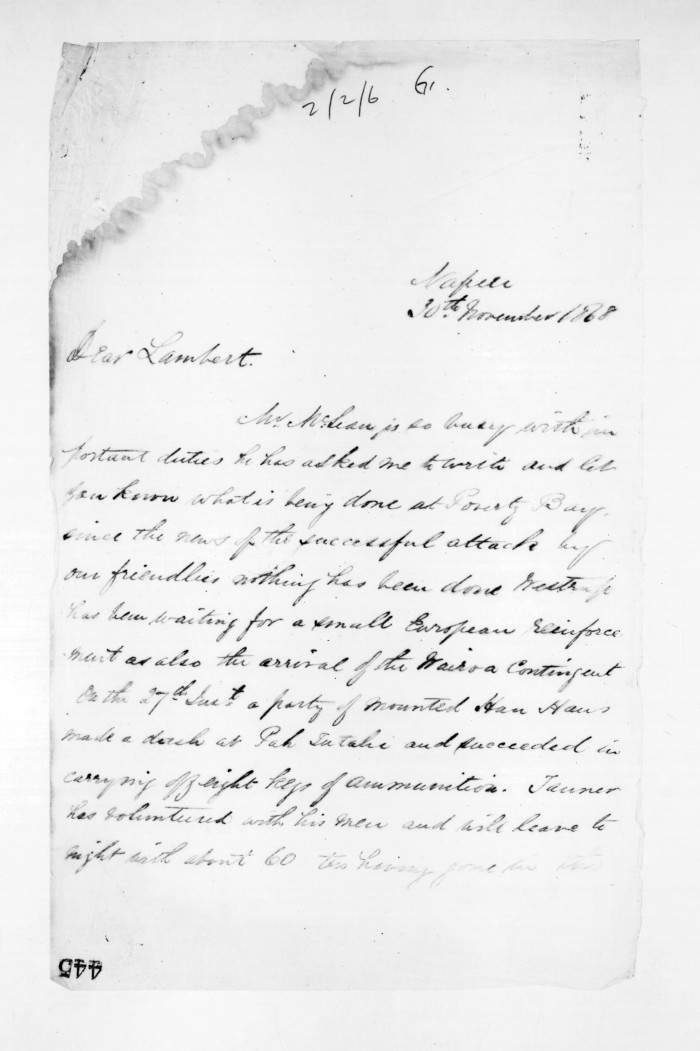 2/2/6 G.
Napier
30th November 1868
Dear Lambert.
Mr. McLean is so busy with im
portant duties he has asked me to write and let
you know what is being done at Poverty Bay.
since the news of the successful attack by
our friendlies nothing has been done Westrup
has been waiting for a small European reinforce
ment as also the arrival of the Wairoa Contingent
On the 27th Inst a party of mounted Hau Haus
made a dash at Pah Tutahi and succeeded in
carrying off eight kegs of ammunition. Tanner
has voluntured with his men and will leave to
night with about 60 having gone in the
445